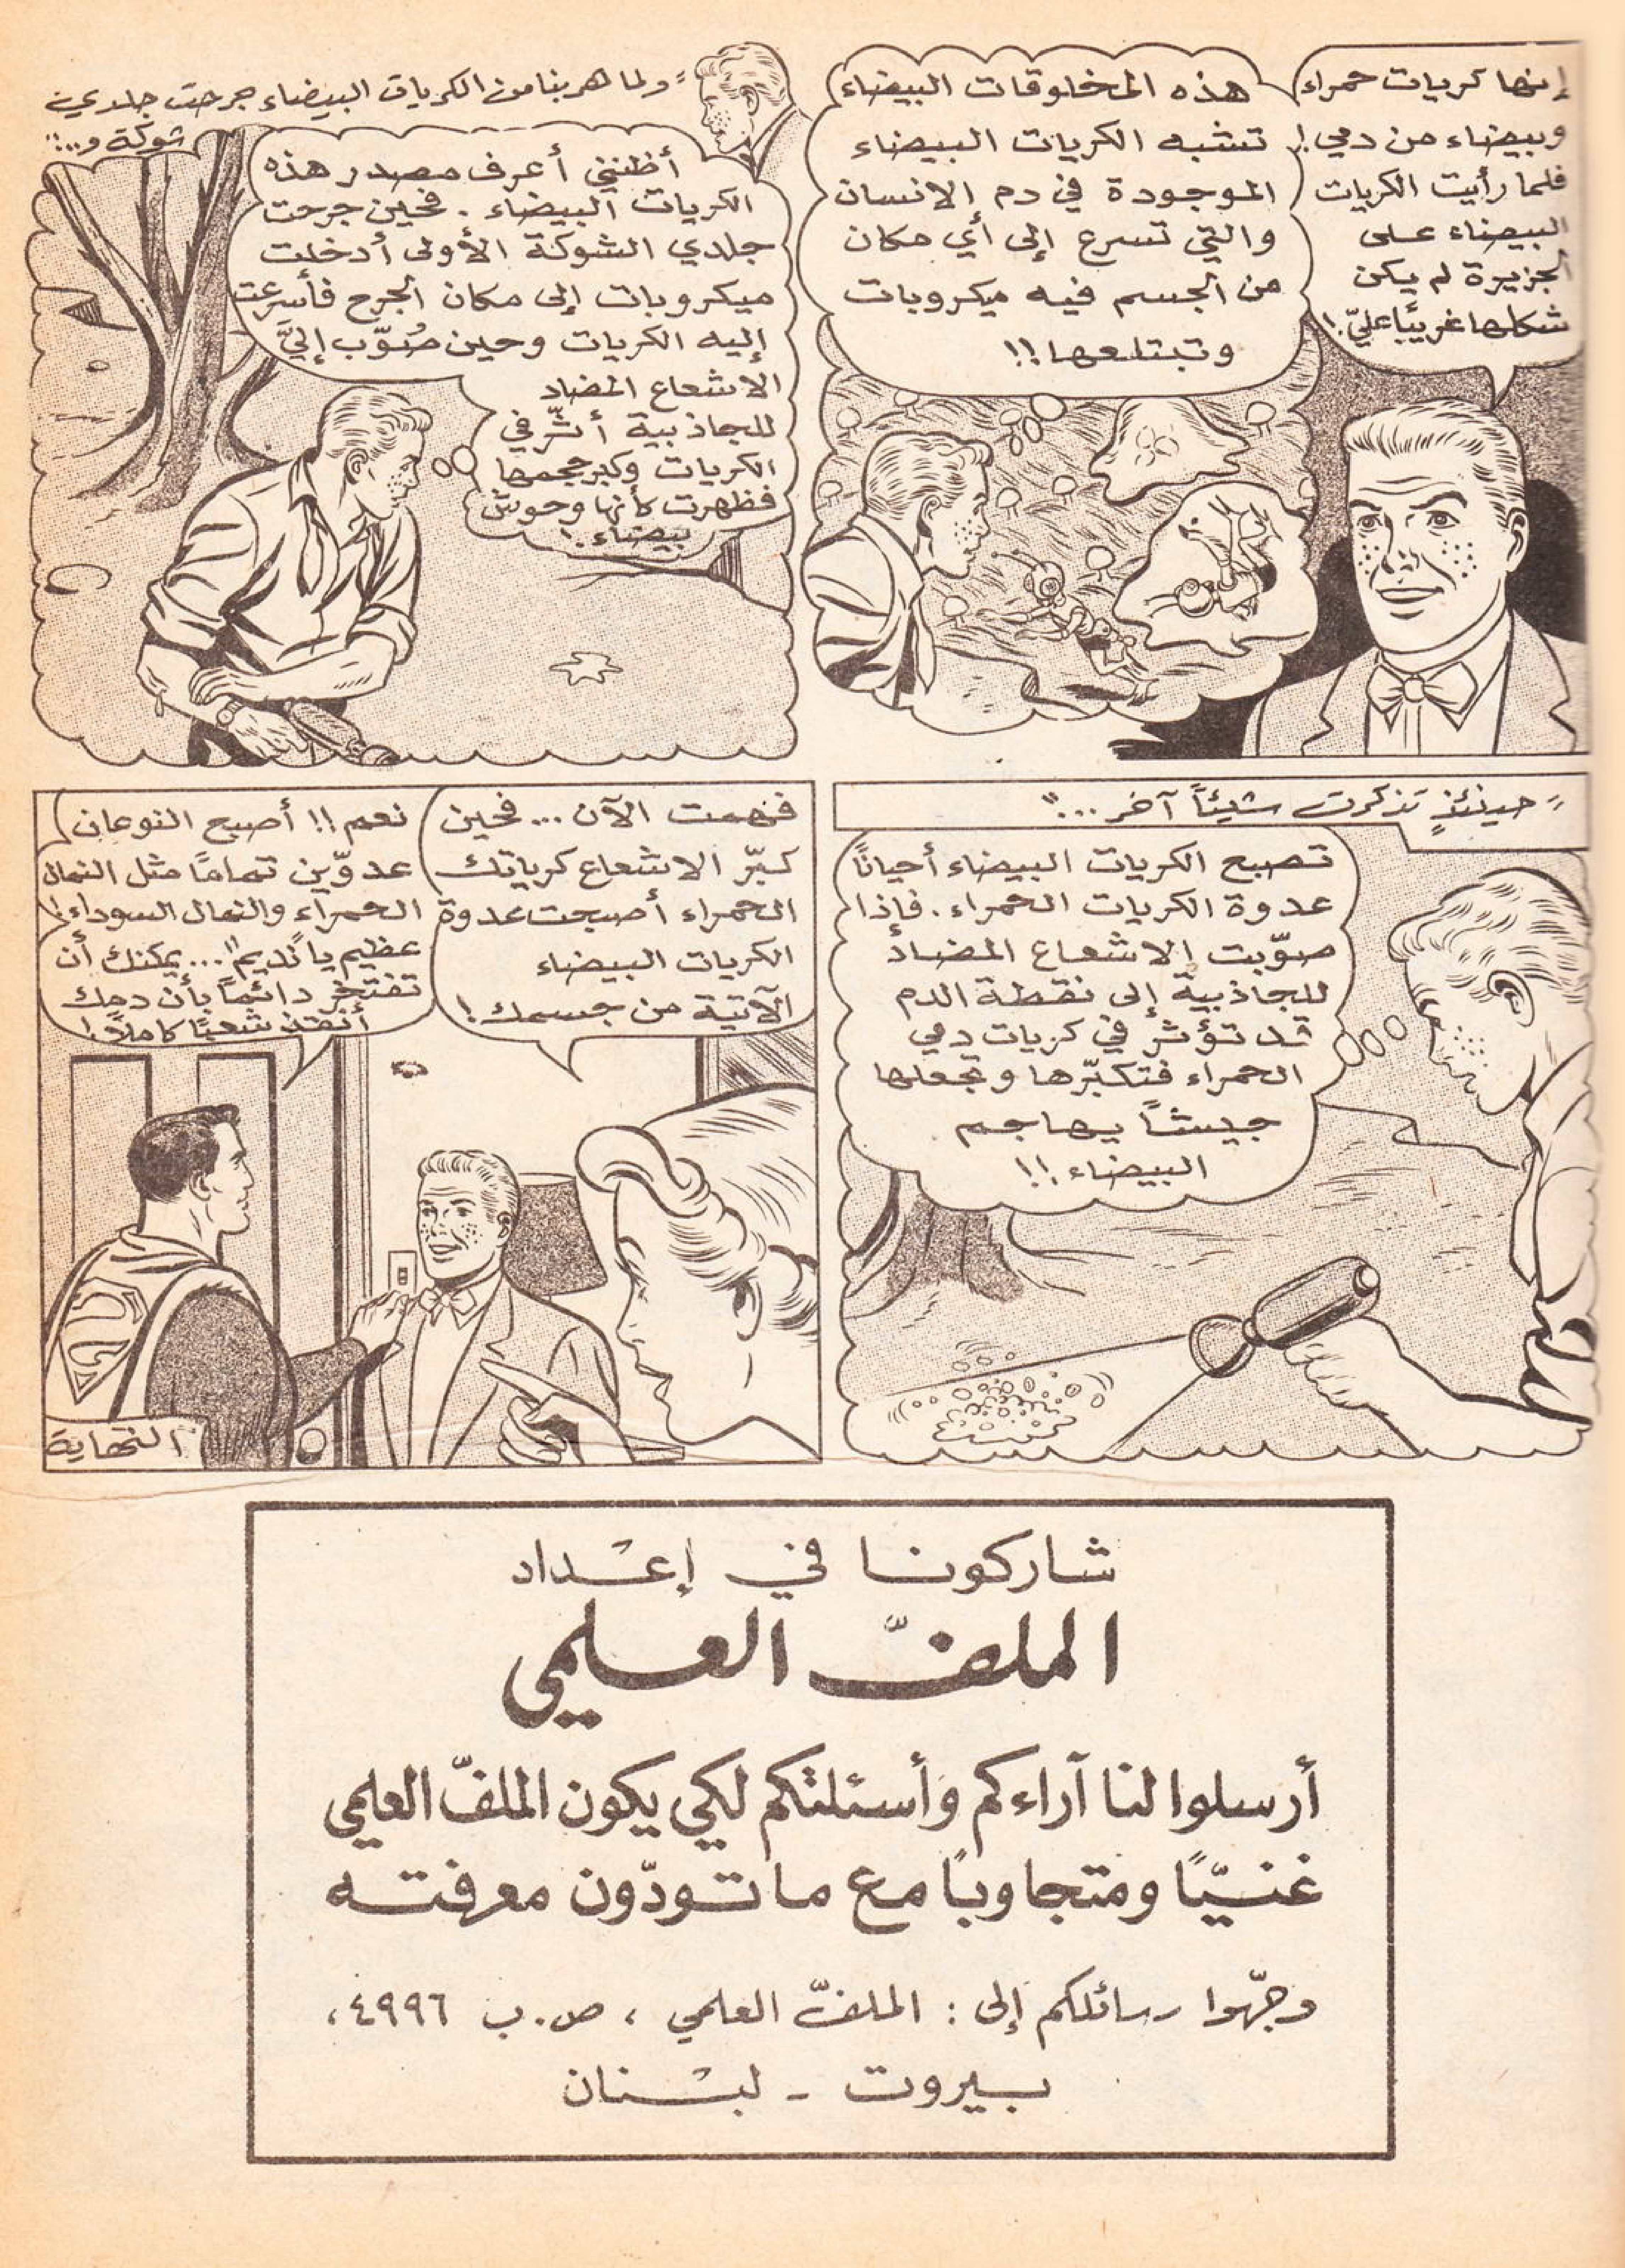 إنها كريات حمراء
وبيضاء من دمي!
فلما رأيت الكريات
البيضاء على
الجزيرة لم يكن
شكلها غريبًا عليّ!
هذه المخلوقات البيضاء
تشبه الكريات البيضاء
الموجودة في دم الانسان
والتي تسرع إلى أي مكان
من الجسم فيه ميكروبات
وتبتلعها!!
"ولما هربنا من الكريات البيضاء جرحت جلدي
شوكة و..."
أظنني أعرف مصدر هذه
الكريات البيضاء. فحين جرحت
جلدي الشوكة الأولى أدخلت
ميكروبات إلى مكان الجرح فأسرعت
إليه الكريات وحين صُوّب إليَّ
الاشعاع المضاد
للجاذبية أثّر في
الكريات وكبر حجمها
فظهرت كأنها وحوش
بيضاء!
"حينئذٍ تذكرت شيئًا آخر..."
تصبح الكريات البيضاء أحيانًا
عدوة الكريات الحمراء. فإذا
صوّبت الاشعاع المضاد
للجاذبية إلى نقطة الدم
قد تؤثر في كريات دمي
الحمراء فتكبّرها وتجعلها
جيشًا يهاجم
البيضاء!!
فهمت الآن... فحين
كبّر الاشعاع كرياتك
الحمراء أصبحت عدوة
الكريات البيضاء
الآتية من جسمك!
نعم!! أصبح النوعان
عدوّين تمامًا مثل النمال
الحمراء والنمال السوداء!
عظيم يا "نديم"... يمكنك أن
تفتخر دائمًا بأن دمك
أنقذ شعبًا كاملًا!
النهاية
شاركونا في إعداد
الملفّ العلمي
أرسلوا لنا آراءكم وأسئلتكم لكي يكون الملفّ العلمي
غنيًّا ومتجاوبًا مع ما تودّون معرفته
وجّهوا رسائلكم إلى : الملفّ العلمي ، ص.ب ٤٩٩٦،
بيروت - لبنان